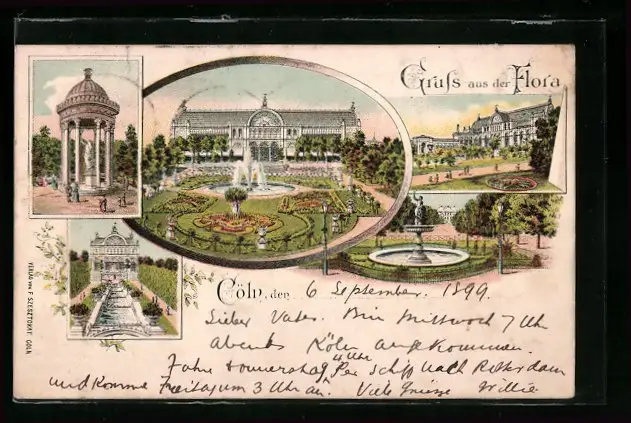 Gruß aus der Flora
VERLAG VON F. SZESZTOKAT, CÖLN
Cöln, den 6 September. 1899
Lieber Vater. Bin Mittwoch 7 Uhr
Abends Köln angekommen.
4 Uhr
Fahre donnerstag Per Schip nach Rotterdam
und komme Freitag um 3 Uhr an. Viele Grüsse Willie